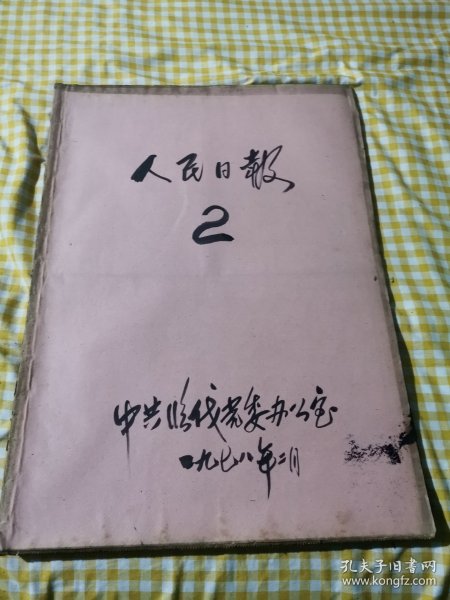 人民日報
2
中共临战党委办公室
一九七八年二月
孔夫子旧书网
www.kongfz.com